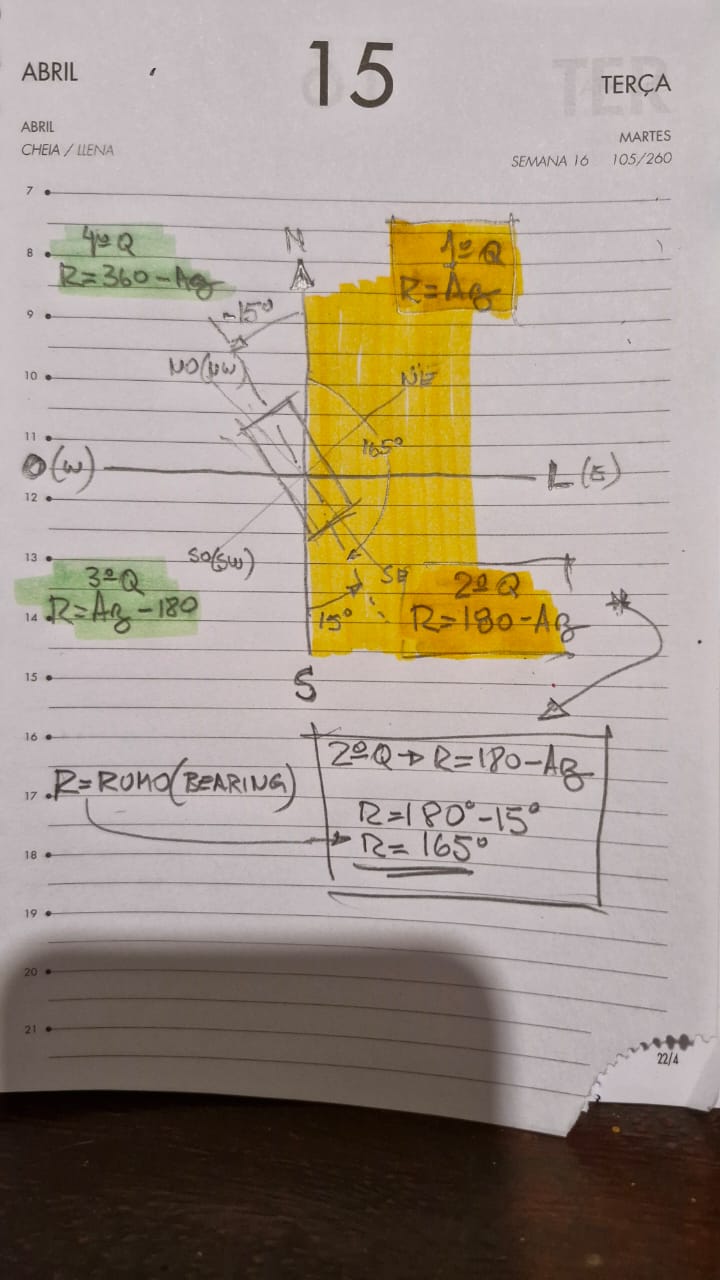 ABRIL
15
TERÇA
ABRIL
CHEIA / LLENA
MARTES
SEMANA 16 105/260
7
8
4º Q
R=360-Az
N
1º Q
R=Az
9
-15º
10
NO(NW)
NE
11
165º
O(W)
L(E)
12
13
SO(SW)
SE
3º Q
R=Az-180
2º Q
R=180-Az
14
15º
15
S
16
2ºQ→R=180-Az
17
R=RUMO(BEARING)
R=180º-15º
R=165º
18
19
20
21
22/4